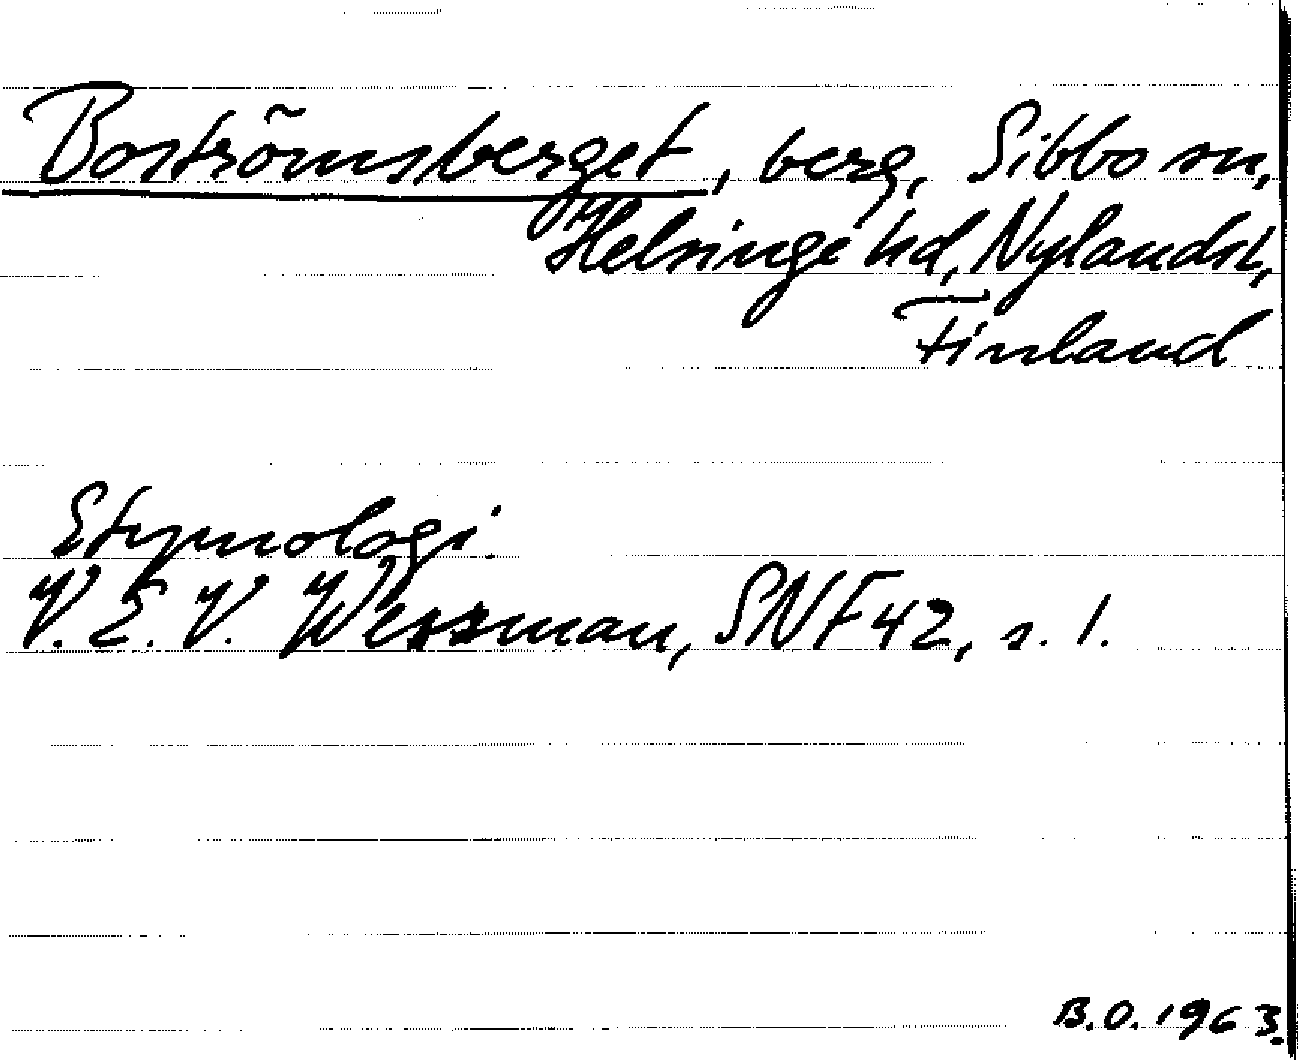 Boströmsberget, berg, Sibbo sn,
Helsinge hd, Nylands l,
Finland
Etymologi.
V. E. V. Wessman, SNF 42, s. 1.
B.O. 1963.